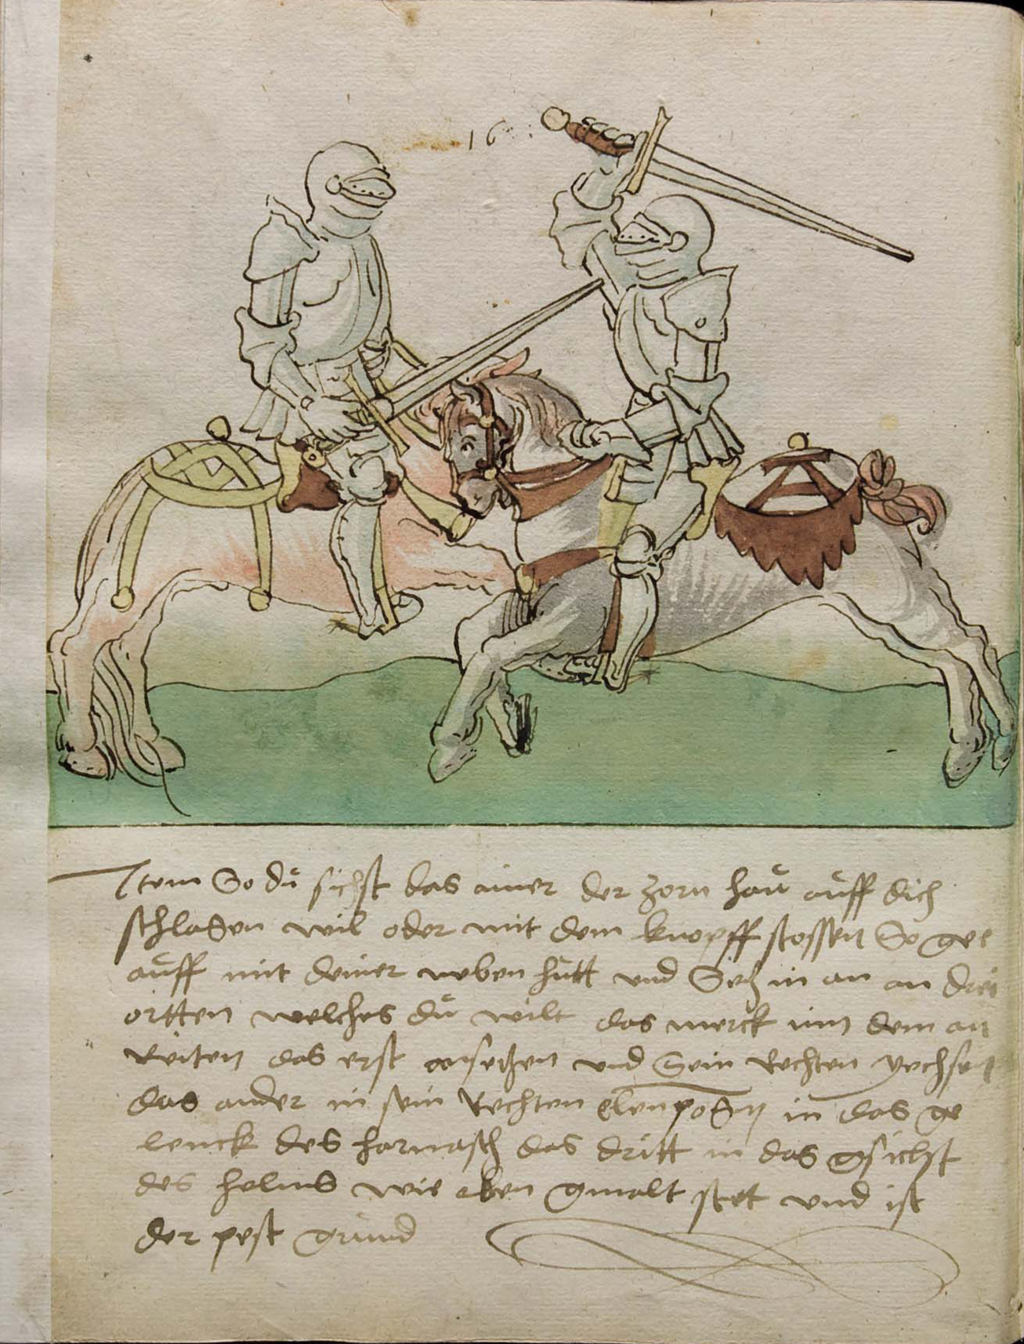 16
Item So du sichst das ainer der zorn hau auff dich
schlagen wil oder mit dem knopff stossen So gee
auff mit deiner neben hutt und Setz in an an drei
ortten welches du wilt das merck inn dem an
Reiten das erst ansetzen und Sein Rechten yechsen
das ander in sein Rechten Elenpogn in das ge
lenck des harnasch das dritt in das gsichst
des helms wie oben gmalt stet und ist
der pest grund